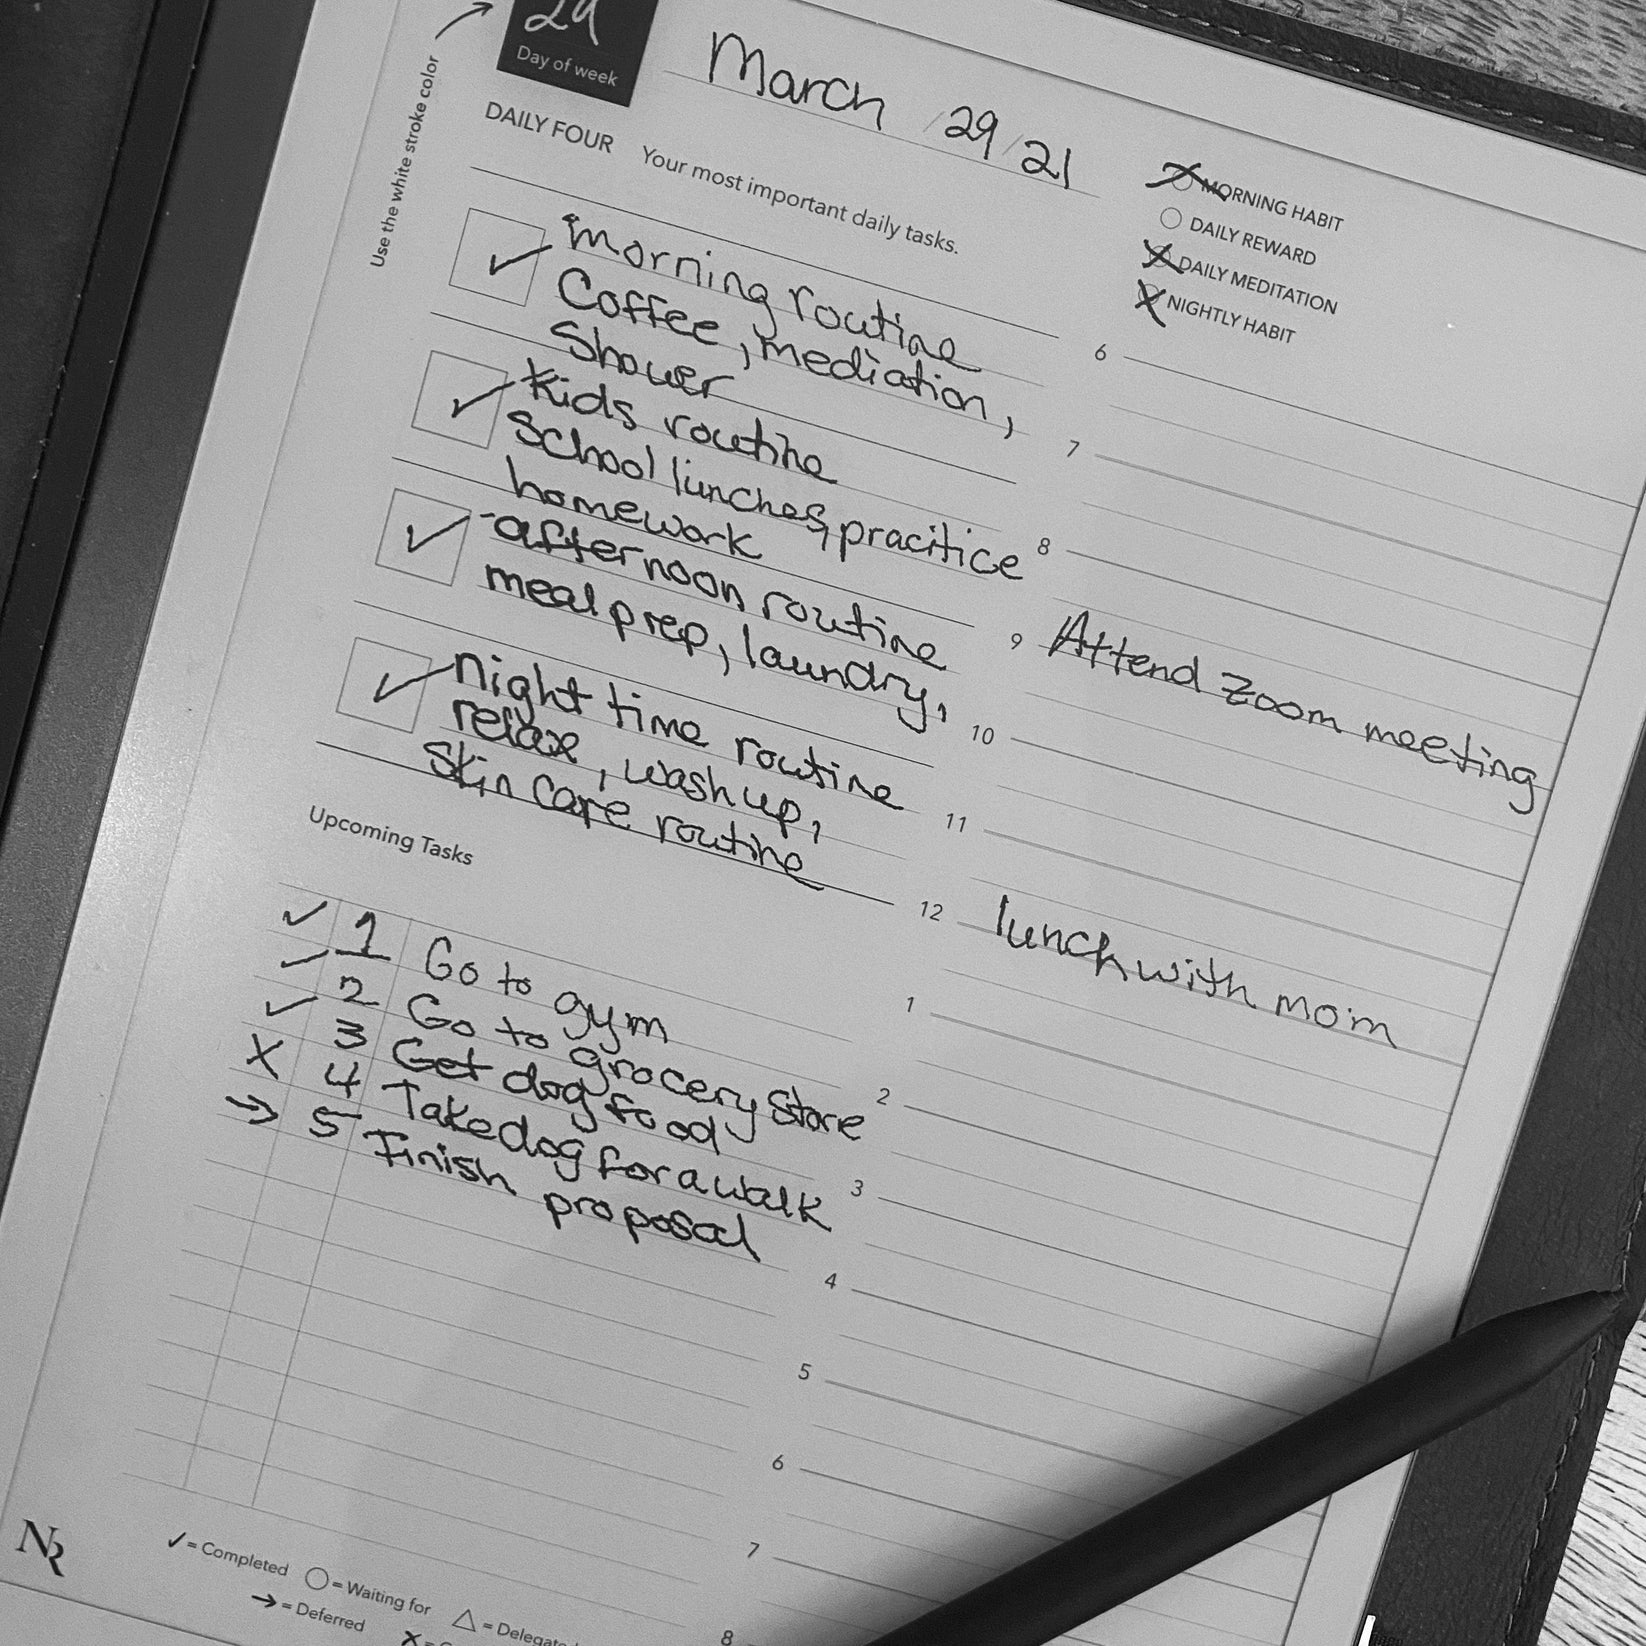 29
Day of week
Use the white stroke color
March / 29 / 21
DAILY FOUR Your most important daily tasks.
MORNING HABIT
DAILY REWARD
DAILY MEDITATION
NIGHTLY HABIT
morning routine
Coffee, mediation,
Shower
Kids routine
School lunches, pracitice
homework
afternoon routine
meal prep, laundry,
night time routine
relax, wash up,
Skin care routine
Upcoming Tasks
✓ 1 Go to gym
✓ 2 Go to grocery Store
✓ 3 Get dog food
X 4 Take dog for a walk
→ 5 Finish
proposal
6
7
8
9 Attend Zoom meeting
10
11
12 lunch with mom
1
2
3
4
5
6
7
8
NR
✓ = Completed ○ = Waiting for △ =
→ = Deferred X =